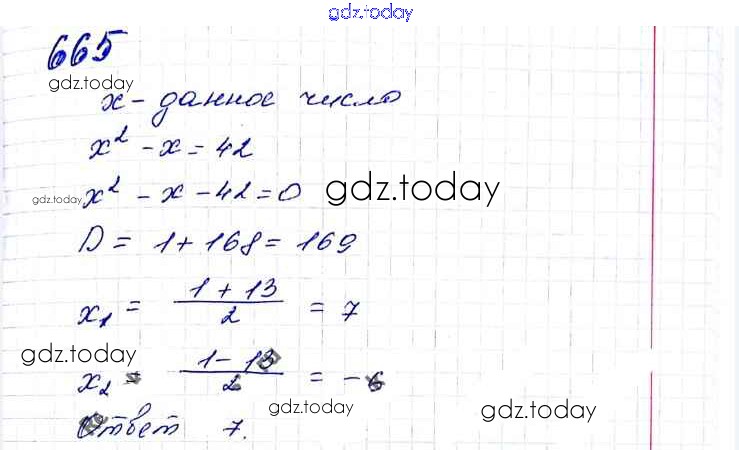 gdz.today
665
gdz.today
x - данное число
x² - x = 42
gdz.today x² - x - 42 = 0 gdz.today
D = 1 + 168 = 169
x₁ = (1 + 13)/2 = 7
gdz.today
x₂ = (1 - 13)/2 = -6
gdz.today gdz.today
Ответ 7.